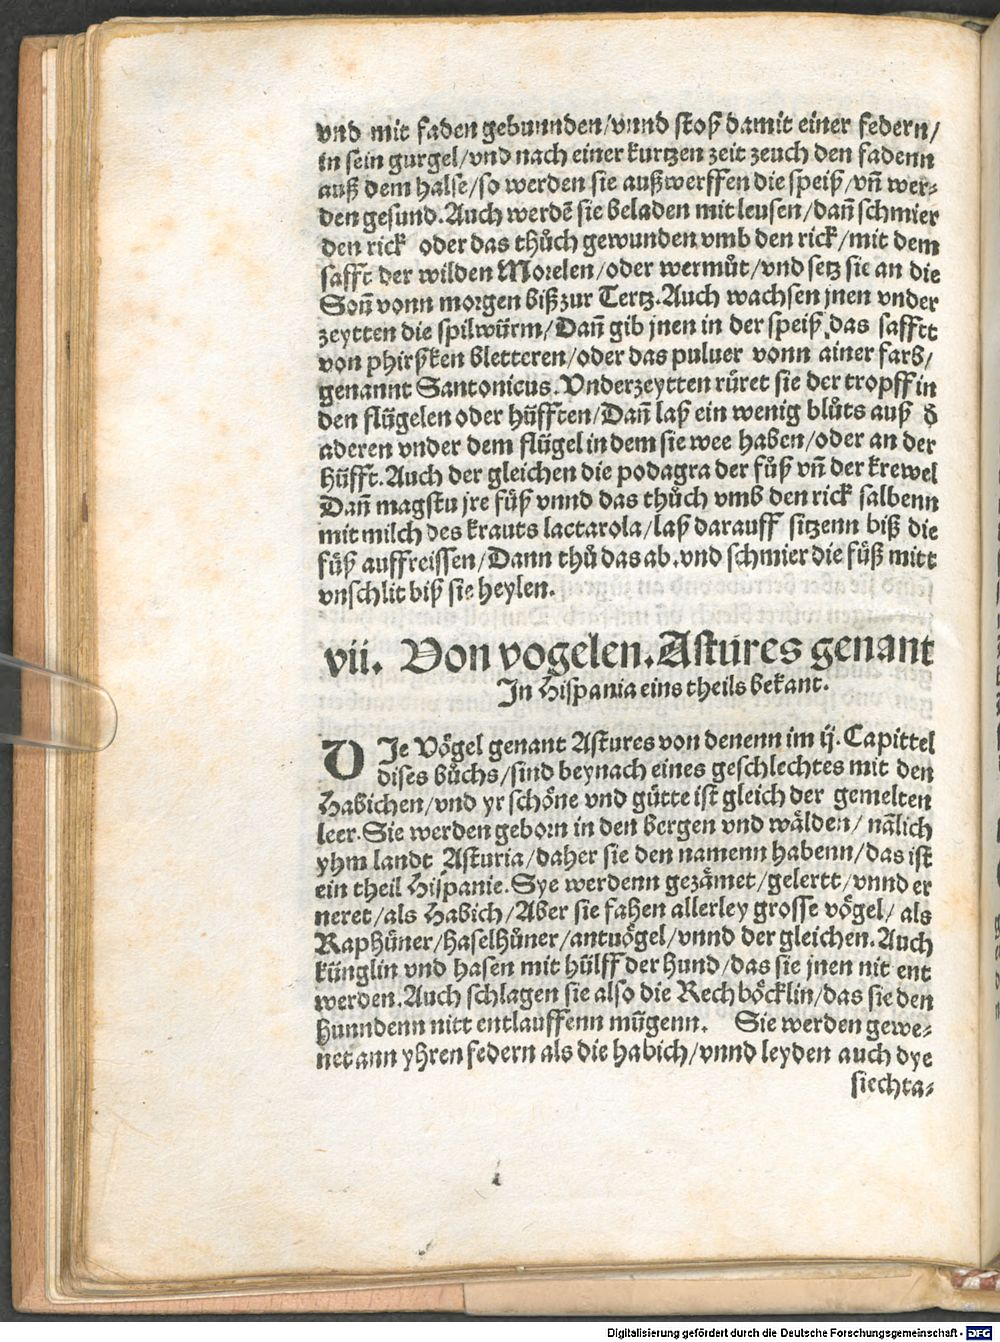 vnd mit faden gebunnden/vnnd stoß damit einer federn/
in sein gurgel/vnd nach einer kurtzen zeit zeuch den fadenn
auß dem halse/so werden sie außwerffen die speiß/vñ wer⸗
den gesund.Auch werdē sie beladen mit leusen/dañ schmier
den rick oder das thůch gewunden vmb den rick/mit dem
safft der wilden Morelen/oder wermůt/vnd setz sie an die
Soñ vonn morgen biß zur Tertz.Auch wachsen jnen vnder
zeytten die spilwürm/Dañ gib jnen in der speiß das safftt
von phirßken bletteren/oder das puluer vonn ainer farb/
genannt Santonicus.Vnderzeytten rüret sie der tropff in
den flügelen oder hüfften/Dañ laß ein wenig blůts auß d̕
aderen vnder dem flügel in dem sie wee haben/oder an der
hüfft.Auch der gleichen die podagra der füß vñ der krewel
Dañ magstu jre füß vnnd das thůch vmb den rick salbenn
mit milch des krauts lactarola/laß darauff sitzenn biß die
füß auffreissen/Dann thů das ab.vnd schmier die füß mitt
vnschlit biß sie heylen.
vii. Von vogelen.Astures genant
In Hispania eins theils bekant.
DIe Vögel genant Astures von denenn im ij.Capittel
dises bůchs/sind beynach eines geschlechtes mit den
Habichen/vnd yr schöne vnd gütte ist gleich der gemelten
leer.Sie werden geborn in den bergen vnd wälden/nālich
yhm landt Asturia/daher sie den namenn habenn/das ist
ein theil Hispanie.Sye werdenn gezämet/gelertt/vnnd er
neret/als Habich/Aber sie fahen allerley grosse vögel/als
Raphüner/haselhůner/antuögel/vnnd der gleichen.Auch
künglin vnd hasen mit hülff der hund/das sie jnen nit ent
werden.Auch schlagen sie also die Rechböcklin/das sie den
hunndenn nitt entlauffenn mügenn. Sie werden gewe⸗
net ann yhren federn als die habich/vnnd leyden auch dye
siechta⸗
Digitalisierung gefördert durch die Deutsche Forschungsgemeinschaft - DFG